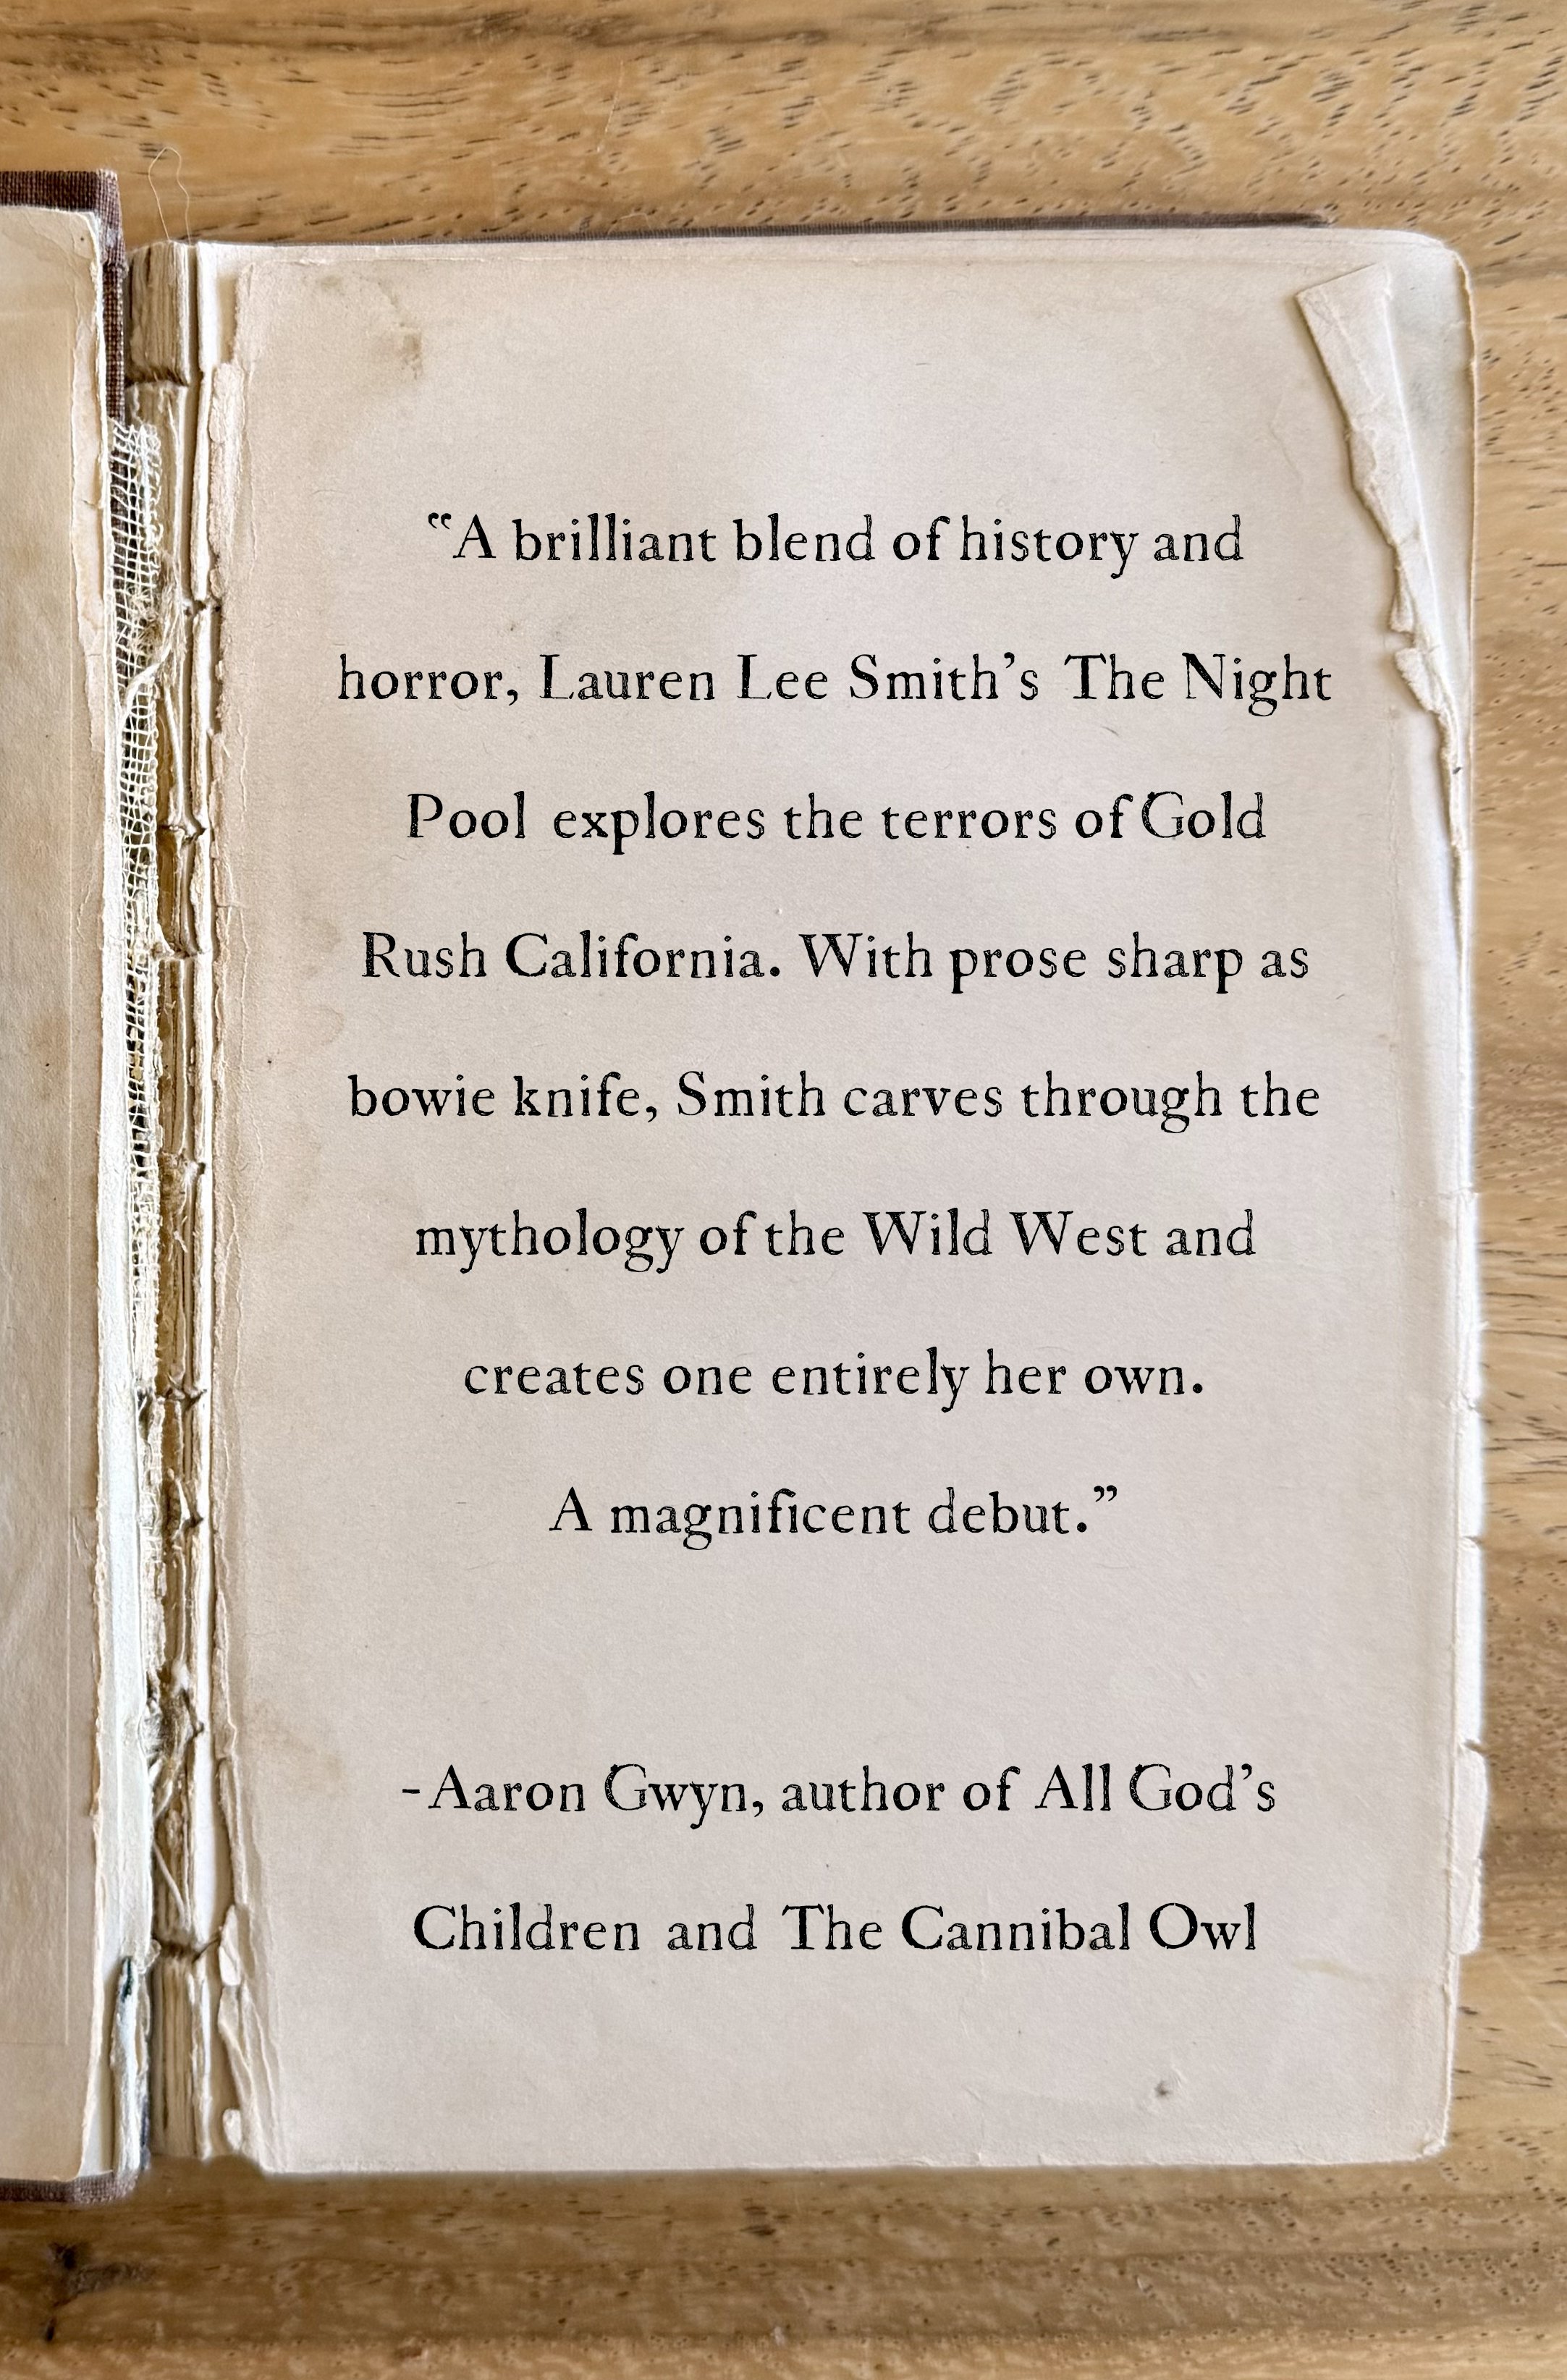 “A brilliant blend of history and
horror, Lauren Lee Smith’s The Night
Pool explores the terrors of Gold
Rush California. With prose sharp as
bowie knife, Smith carves through the
mythology of the Wild West and
creates one entirely her own.
A magnificent debut.”
-Aaron Gwyn, author of All God’s
Children and The Cannibal Owl